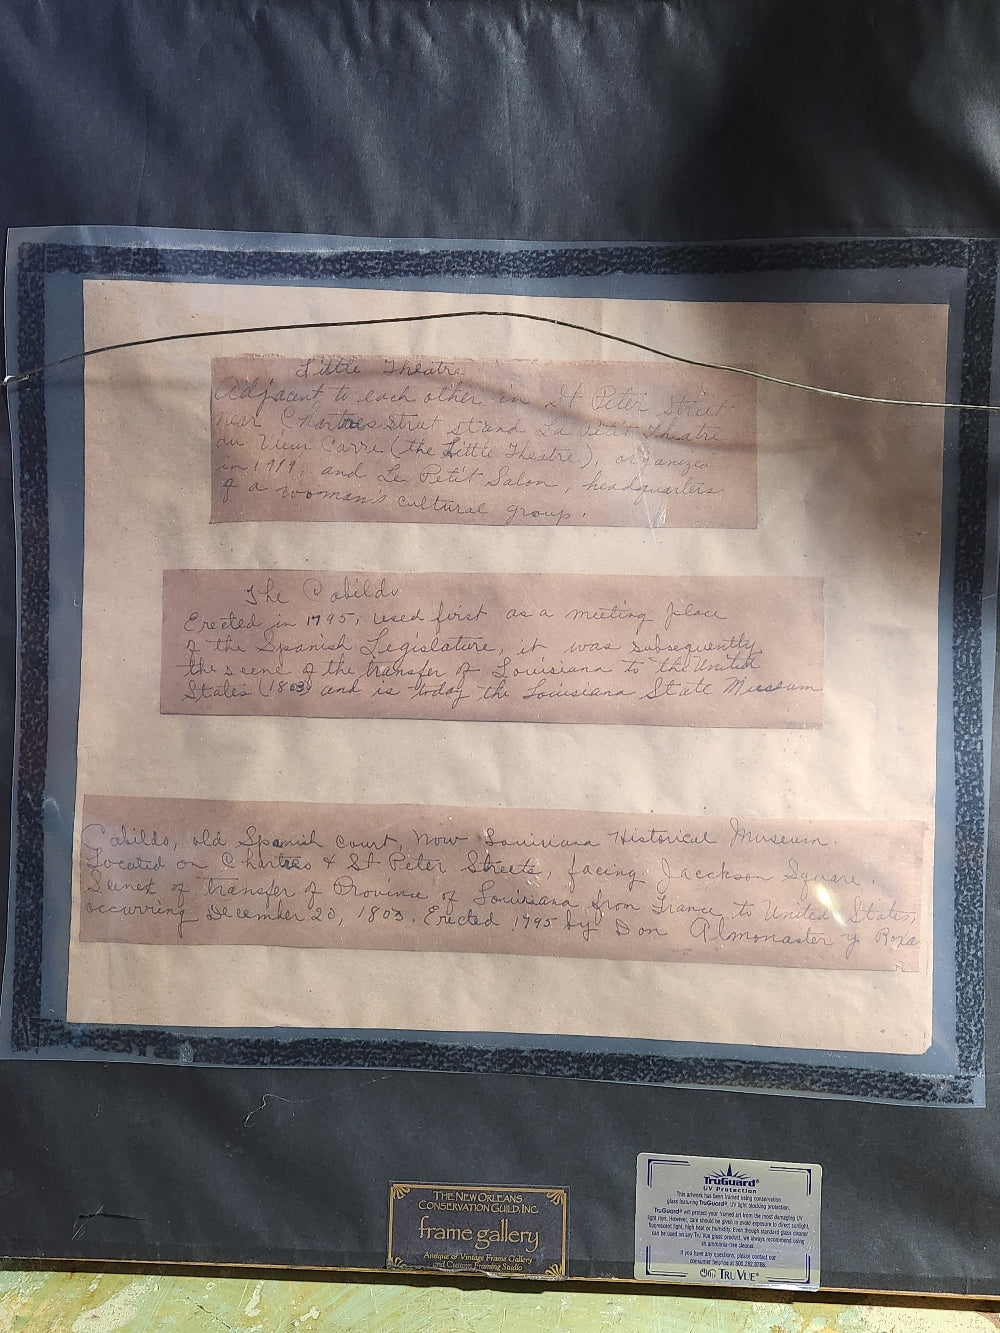 Little Theatre
Adjacent to each other in St Peter Street
near Chartres Street stand La Petit Theatre
du Vieux Carré (the Little Theatre), organized
in 1919, and Le Petit Salon, headquarters
of a woman's cultural group.
The Cabildo
Erected in 1795, used first as a meeting place
of the Spanish Legislature, it was subsequently
the scene of the transfer of Louisiana to the United
States (1803) and is today the Louisiana State Museum
Cabildo, old Spanish court, Now Louisiana Historical Museum.
Located on Chartres & St Peter Streets, facing Jacckson Square.
Scenes of transfer of Province of Louisiana from France to United States,
occurring December 20, 1803. Erected 1795 by Don Almonaster y Roxa
THE NEW ORLEANS
CONSERVATION GUILD, INC.
frame gallery
Antique & Vintage Frame Gallery
and Custom Framing Studio
TruGuard®
UV Protection
This artwork has been framed using conservation
glass featuring TruGuard® UV light blocking protection.
TruGuard® will protect your framed art from the most damaging UV
light rays. However, care should be given to avoid exposure to direct sunlight,
fluorescent light, high heat or humidity. Even though standard glass cleaner
can be used on any Tru Vue glass product, we always recommend using
an ammonia-free cleaner.
If you have any questions, please contact our
consumer helpline at 800.282.8788.
TRU VUE®